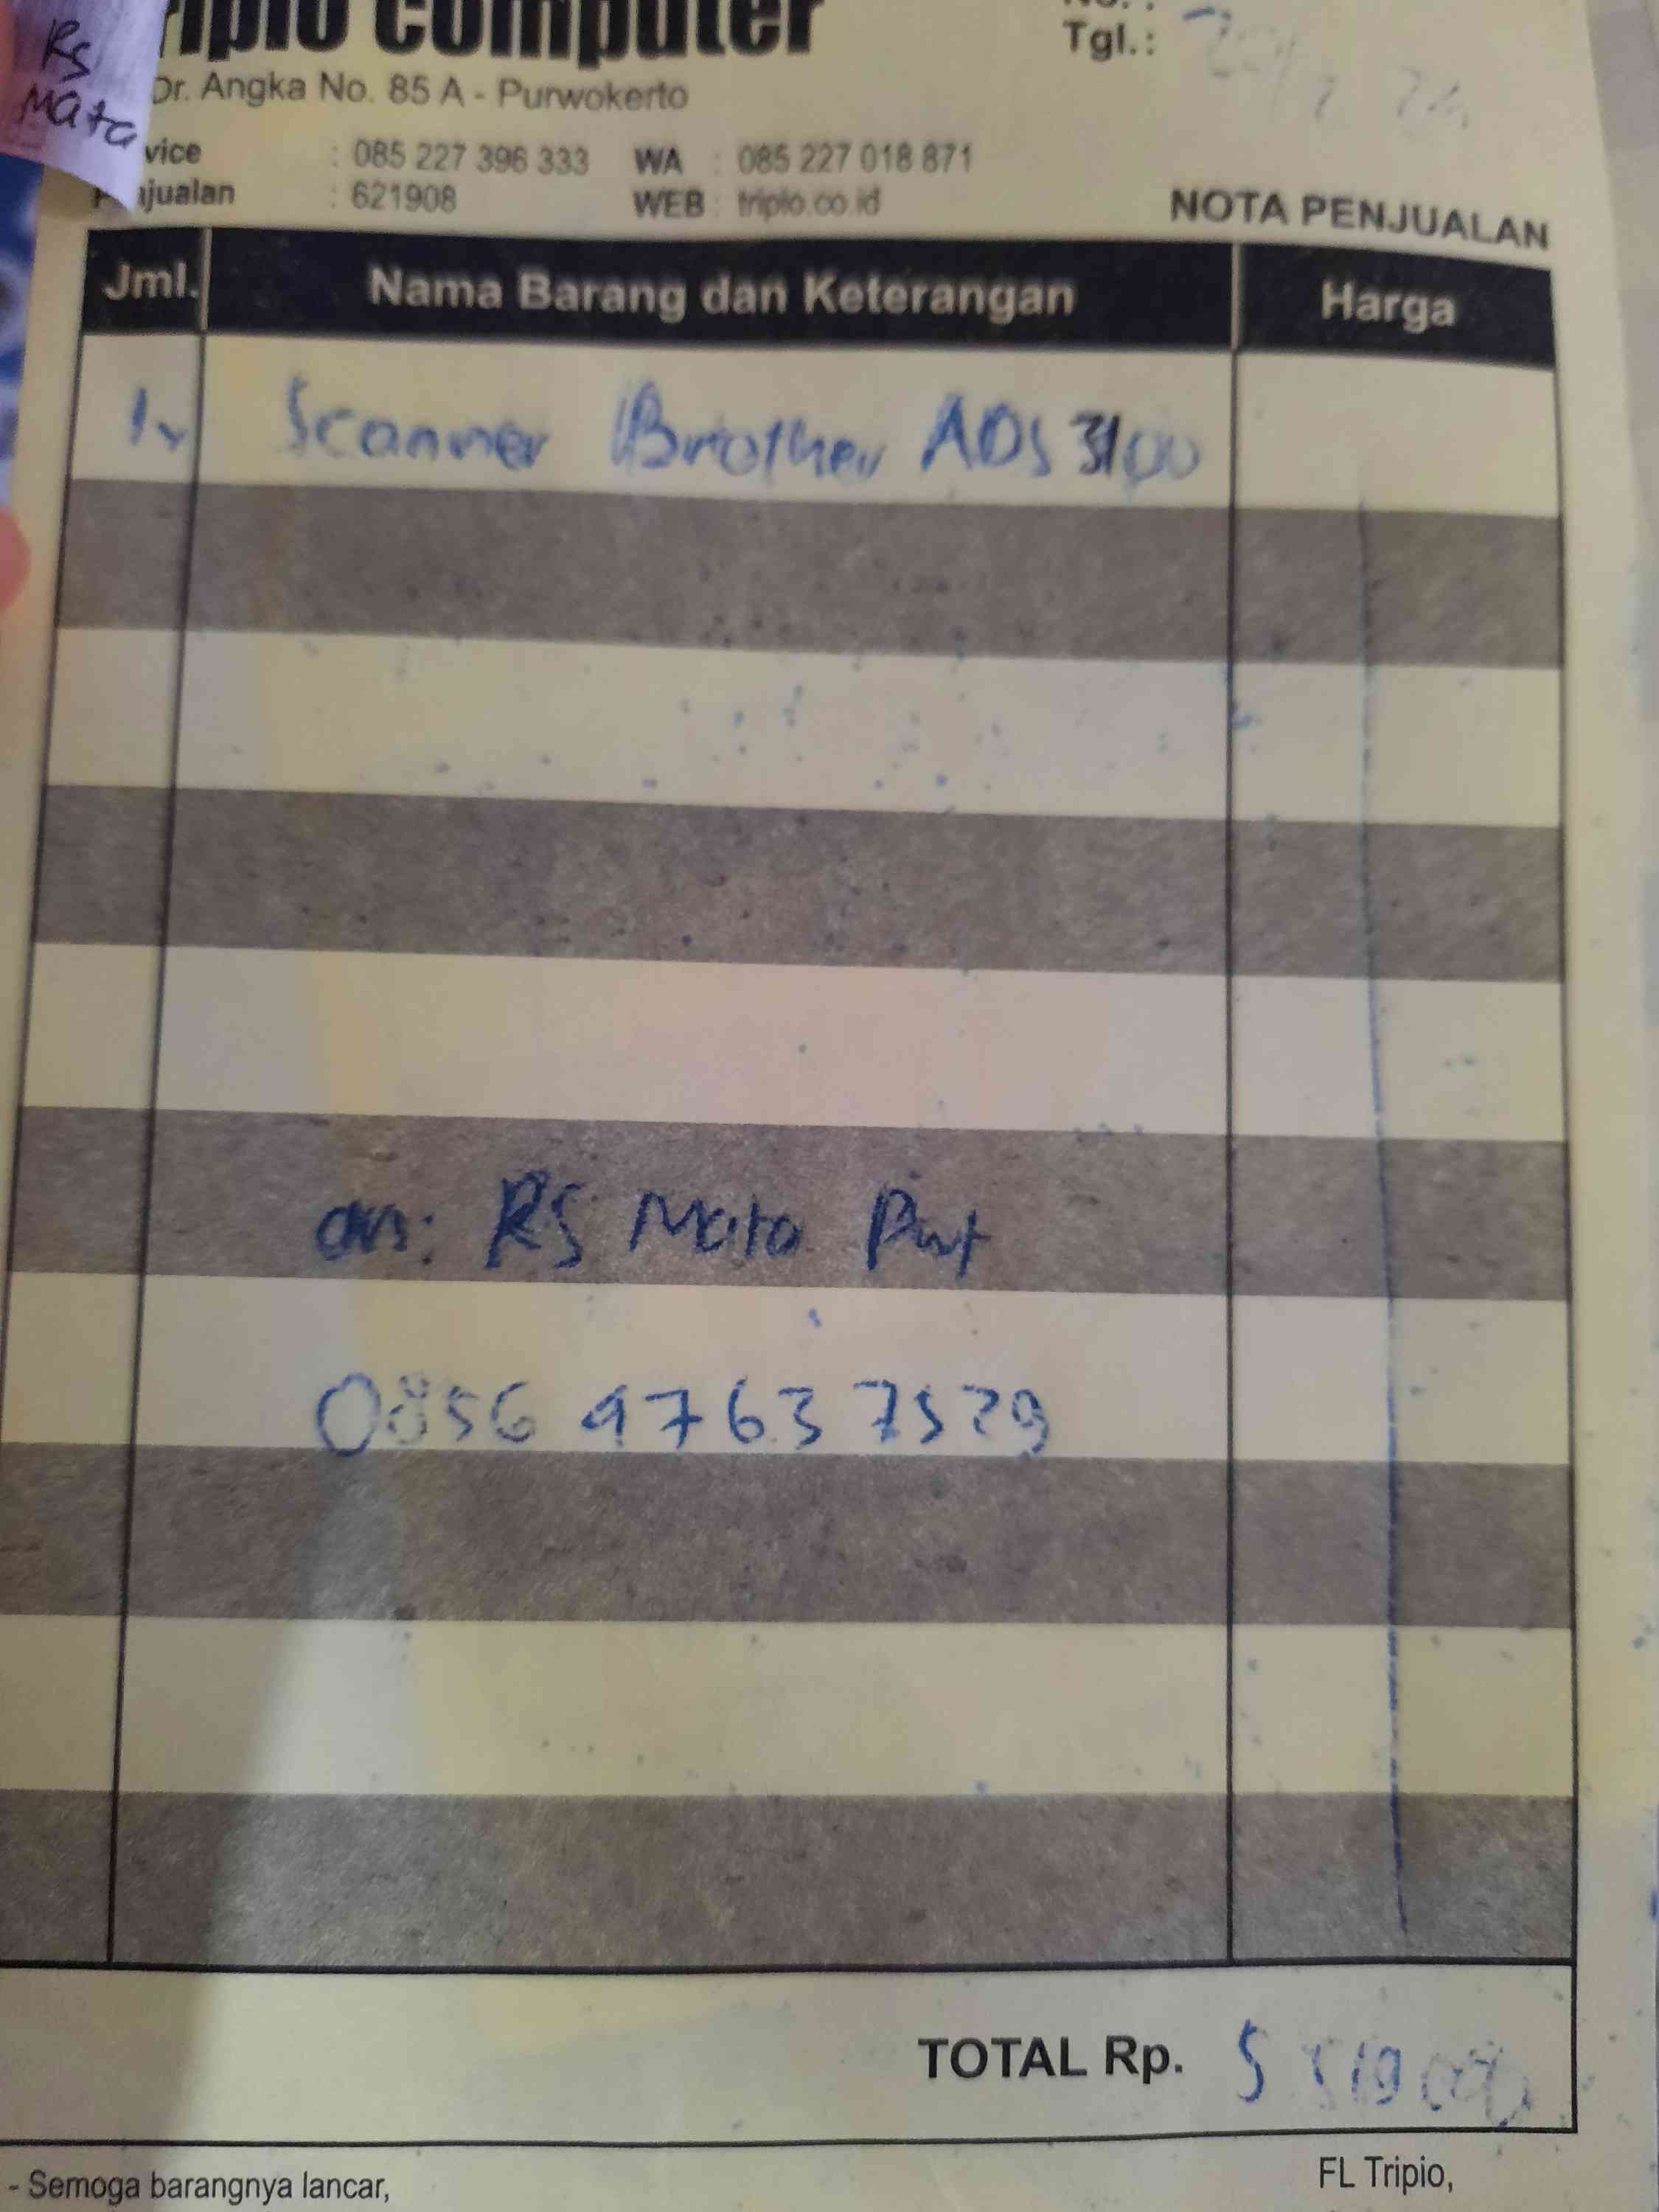 Rs
Mata
Computer
No. :
Tgl.:
Dr. Angka No. 85 A - Purwokerto
vice : 085 227 396 333 WA : 085 227 018 871
jualan : 621908 WEB : triplo.co.id
NOTA PENJUALAN
Jml. Nama Barang dan Keterangan Harga
1 Scanner Brother ADS 3100
an: RS Mata Pwt
0856 4763 7529
TOTAL Rp. 5
- Semoga barangnya lancar,
FL Tripio,